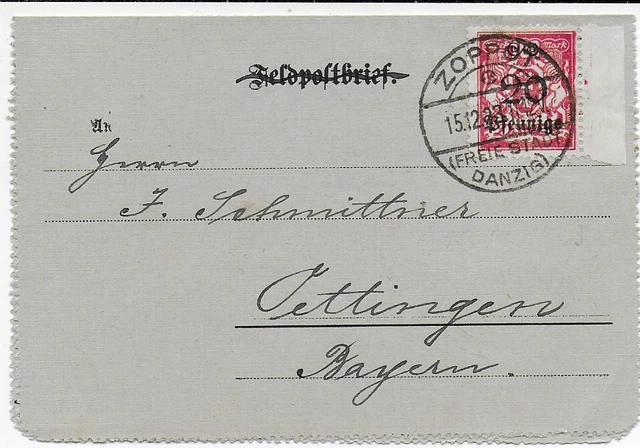 Feldpostbrief.
ZOPPOT
15.12.23
(FREIE STADT
DANZIG)
Mark
20
Pfennige
An
Herrn
J. Schmittner
Oettingen
Bayern.